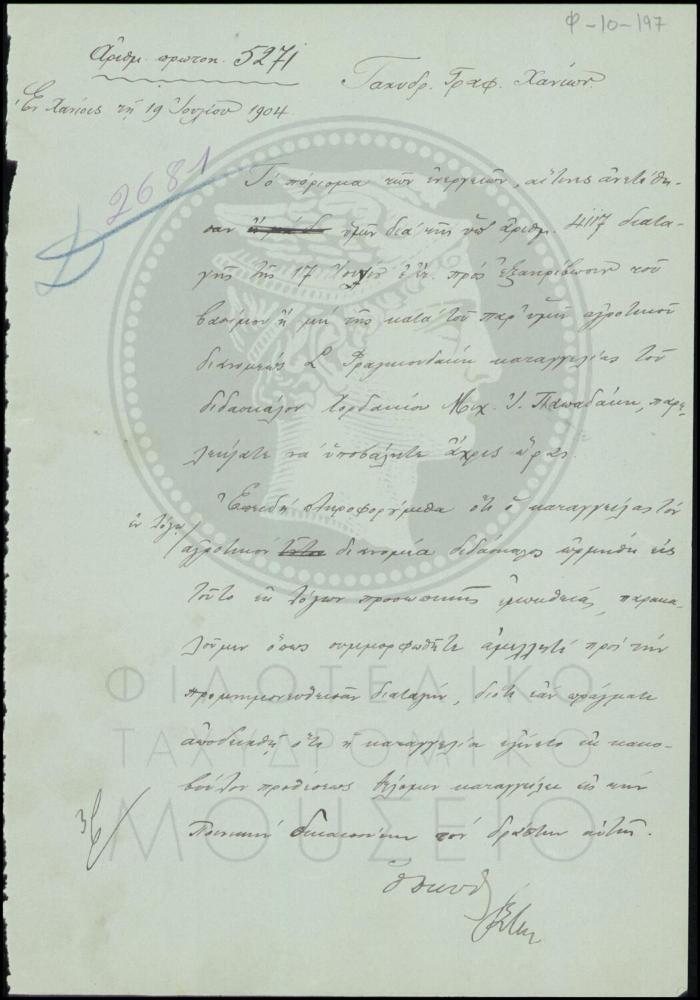 Φ-10-197
Αριθμ. πρωτοκ. 5271
Ταχυδρ. Γραφ. Χανίων.
Ἐν Χανίοις τῇ 19 Ἰουλίου 1904.
2681
Τὸ πόρισμα τῶν ἐνεργειῶν, αἵτινες ἀνετέθη-
σαν ὑμῖν διὰ τῆς ὑπ' ἀριθμ. 4117 διατα-
γῆς τῆς 17 πρὸς ἐξακρίβωσιν τοῦ
βασίμου ἢ μὴ τῆς κατὰ τοῦ παρ' ὑμῖν ἀγροτικοῦ
διανομέως Φραγκιουδάκη καταγγελίας τοῦ
διδασκάλου Μιχ. Ι. Παπαδάκη, παρε-
λείψατε νὰ ὑποβάλητε ἄχρις ὥρας.
Ἐπειδὴ πληροφορούμεθα ὅτι ὁ καταγγείλας τὸν
ἐν λόγῳ
ἀγροτικὸν διανομέα διδάσκαλος ὡρμήθη εἰς
τοῦτο ἐκ λόγων προσωπικῆς ἐμπαθείας, παρακα-
λοῦμεν ὅπως συμμορφωθῆτε ἀμελλητὶ πρὸς τὴν
προμνημονευθεῖσαν διαταγήν, διότι ἐὰν πράγματι
ἀποδειχθῇ ὅτι ἡ καταγγελία ἐγένετο ἐκ κακο-
βούλου προθέσεως θέλομεν καταγγείλει εἰς τὴν
Ποινικὴν δικαιοσύνην τὸν δράστην αὐτῆς.
ΦΙΛΟΤΕΛΙΚΟ
ΤΑΧΥΔΡΟΜΙΚΟ
ΜΟΥΣΕΙΟ